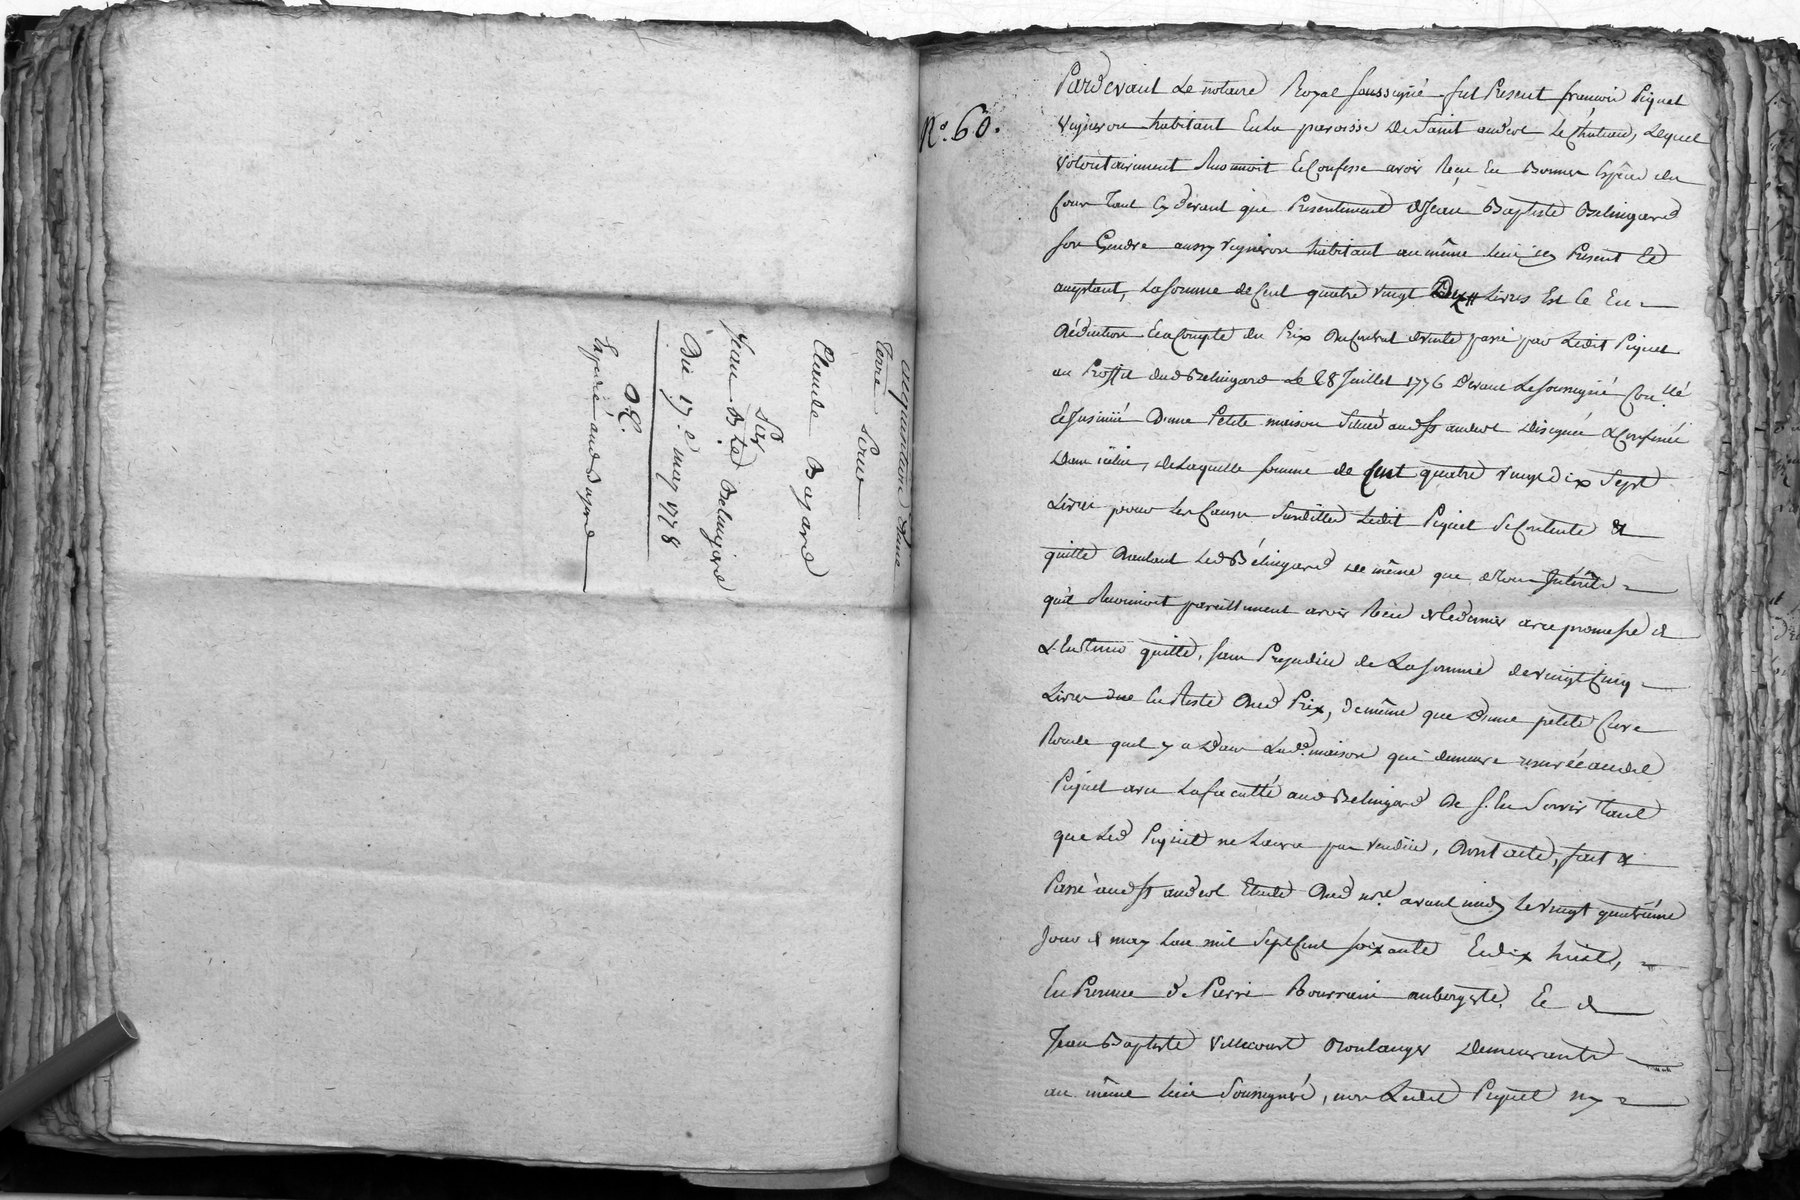 acquisition d'une
terre
Claude Bayard
Par
Jean Bte Belingard
Du 17e may 1778
Expedié aud Bayard
No. 60.
Pardevant Le notaire Royal soussigné fut Present françois Piquet
vigneron habitant En La paroisse De saint andeol Le Château, Lequel
volontairement Reconnoit & Confesse avoir Reçu En Bonnes Especes du
Cour Tant Cy devant que Presentement de Jean Baptiste Belingard
son Gendre aussy vigneron habitant au même Lieu icy Present &
aceptant, La somme de Cent quatre vingt Dix sept Livres Est ce En
déduction & a Compte du Prix du Contrat de vente passé par Ledit Piquet
au Proffit dud Belingard Le 28 Juillet 1776 Devant Le soussigné Con.llé
& Insinué D'une Petite maison Située aud St andeol Désignée & Confinée
Dans icelui, de Laquelle somme de Cent quatre vingt dix Sept
Livres pour Les Causes Susdittes Ledit Piquet Se Contente &
quitte Led Bélingard De même que des Intérêts
qu'il Reconnoit pareillement avoir Reçu avec promesse de
L'En Tenir quitte, sans Prejudice de La somme de vingt Cinq
Livres due En Reste Dud Prix, de même que D'une petite Cuve
Ronde quil y a Dans Lad.e maison qui demeure reservée audit
Piquet avec La faculté aud Belingard De s'En Servir Tant
que Led Piquet ne L'aura pas vendüe, Dont acte, fait &
Passé aud St andeol Etude Dud nre avant midy Le vingt quatrième
Jour de may L'an mil Sept Cent soixante & dix huit,
En Presence de Pierre aubergiste, & de
Jean Baptiste Villecourt Boulanger Demeurants
au même Lieu Soussignés, non Ledit Piquet ny